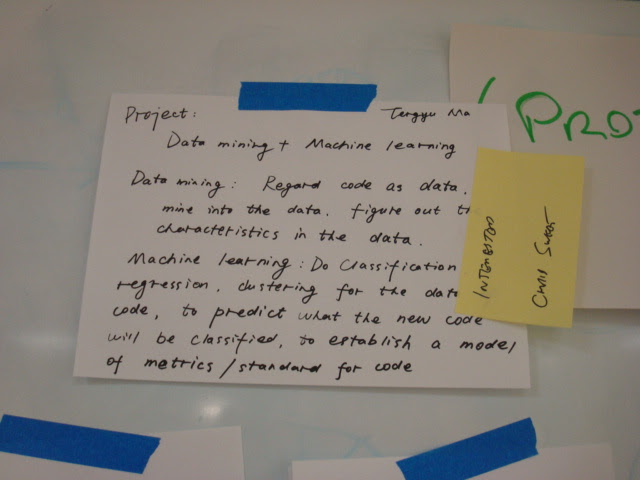 Project: Tengyu Ma
Data mining + Machine learning
Data mining: Regard code as data,
mine into the data. figure out
characteristics in the data.
Machine learning: Do Classification
regression. clustering for the data
code, to predict what the new code
will be classified, to establish a model
of metrics/standard for code
INTERESTED
CHRIS
PRO